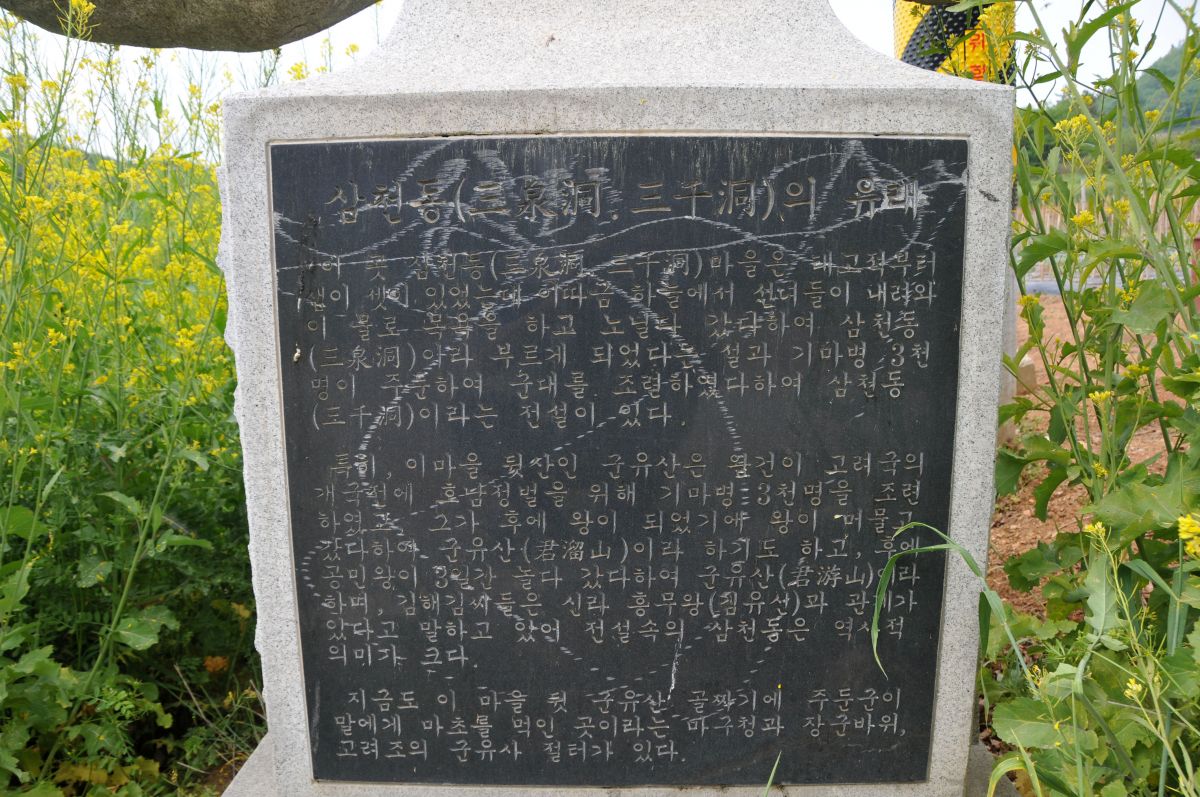 삼천동(三泉洞, 三千洞)의 유래
이 곳 삼천동(三泉洞, 三千洞)마을은 태고적부터
샘이 셋이 있었는데 이따금 하늘에서 선녀들이 내려와
이 물로 목욕을 하고 노닐다 갔다하여 삼천동
(三泉洞)이라 부르게 되었다는 설과 기마병 3천
명이 주둔하여 군대를 조련하였다하여 삼천동
(三千洞)이라는 전설이 있다.
특히, 이마을 뒷산인 군유산은 왕건이 고려국의
개국전에 호남정벌을 위해 기마병 3천명을 조련
하였고 그가 후에 왕이 되었기에 왕이 머물고
갔다하여 군유산(君溜山)이라 하기도 하고, 후에
공민왕이 3일간 놀다 갔다하여 군유산(君游山)이라
하며, 김해김씨들은 신라 흥무왕(김유신)과 관계가
있다고 말하고 있어 전설속의 삼천동은 역사적
의미가 크다.
지금도 이 마을 뒷 군유산 골짜기에 주둔군이
말에게 마초를 먹인 곳이라는 마구청과 장군바위,
고려조의 군유사 절터가 있다.